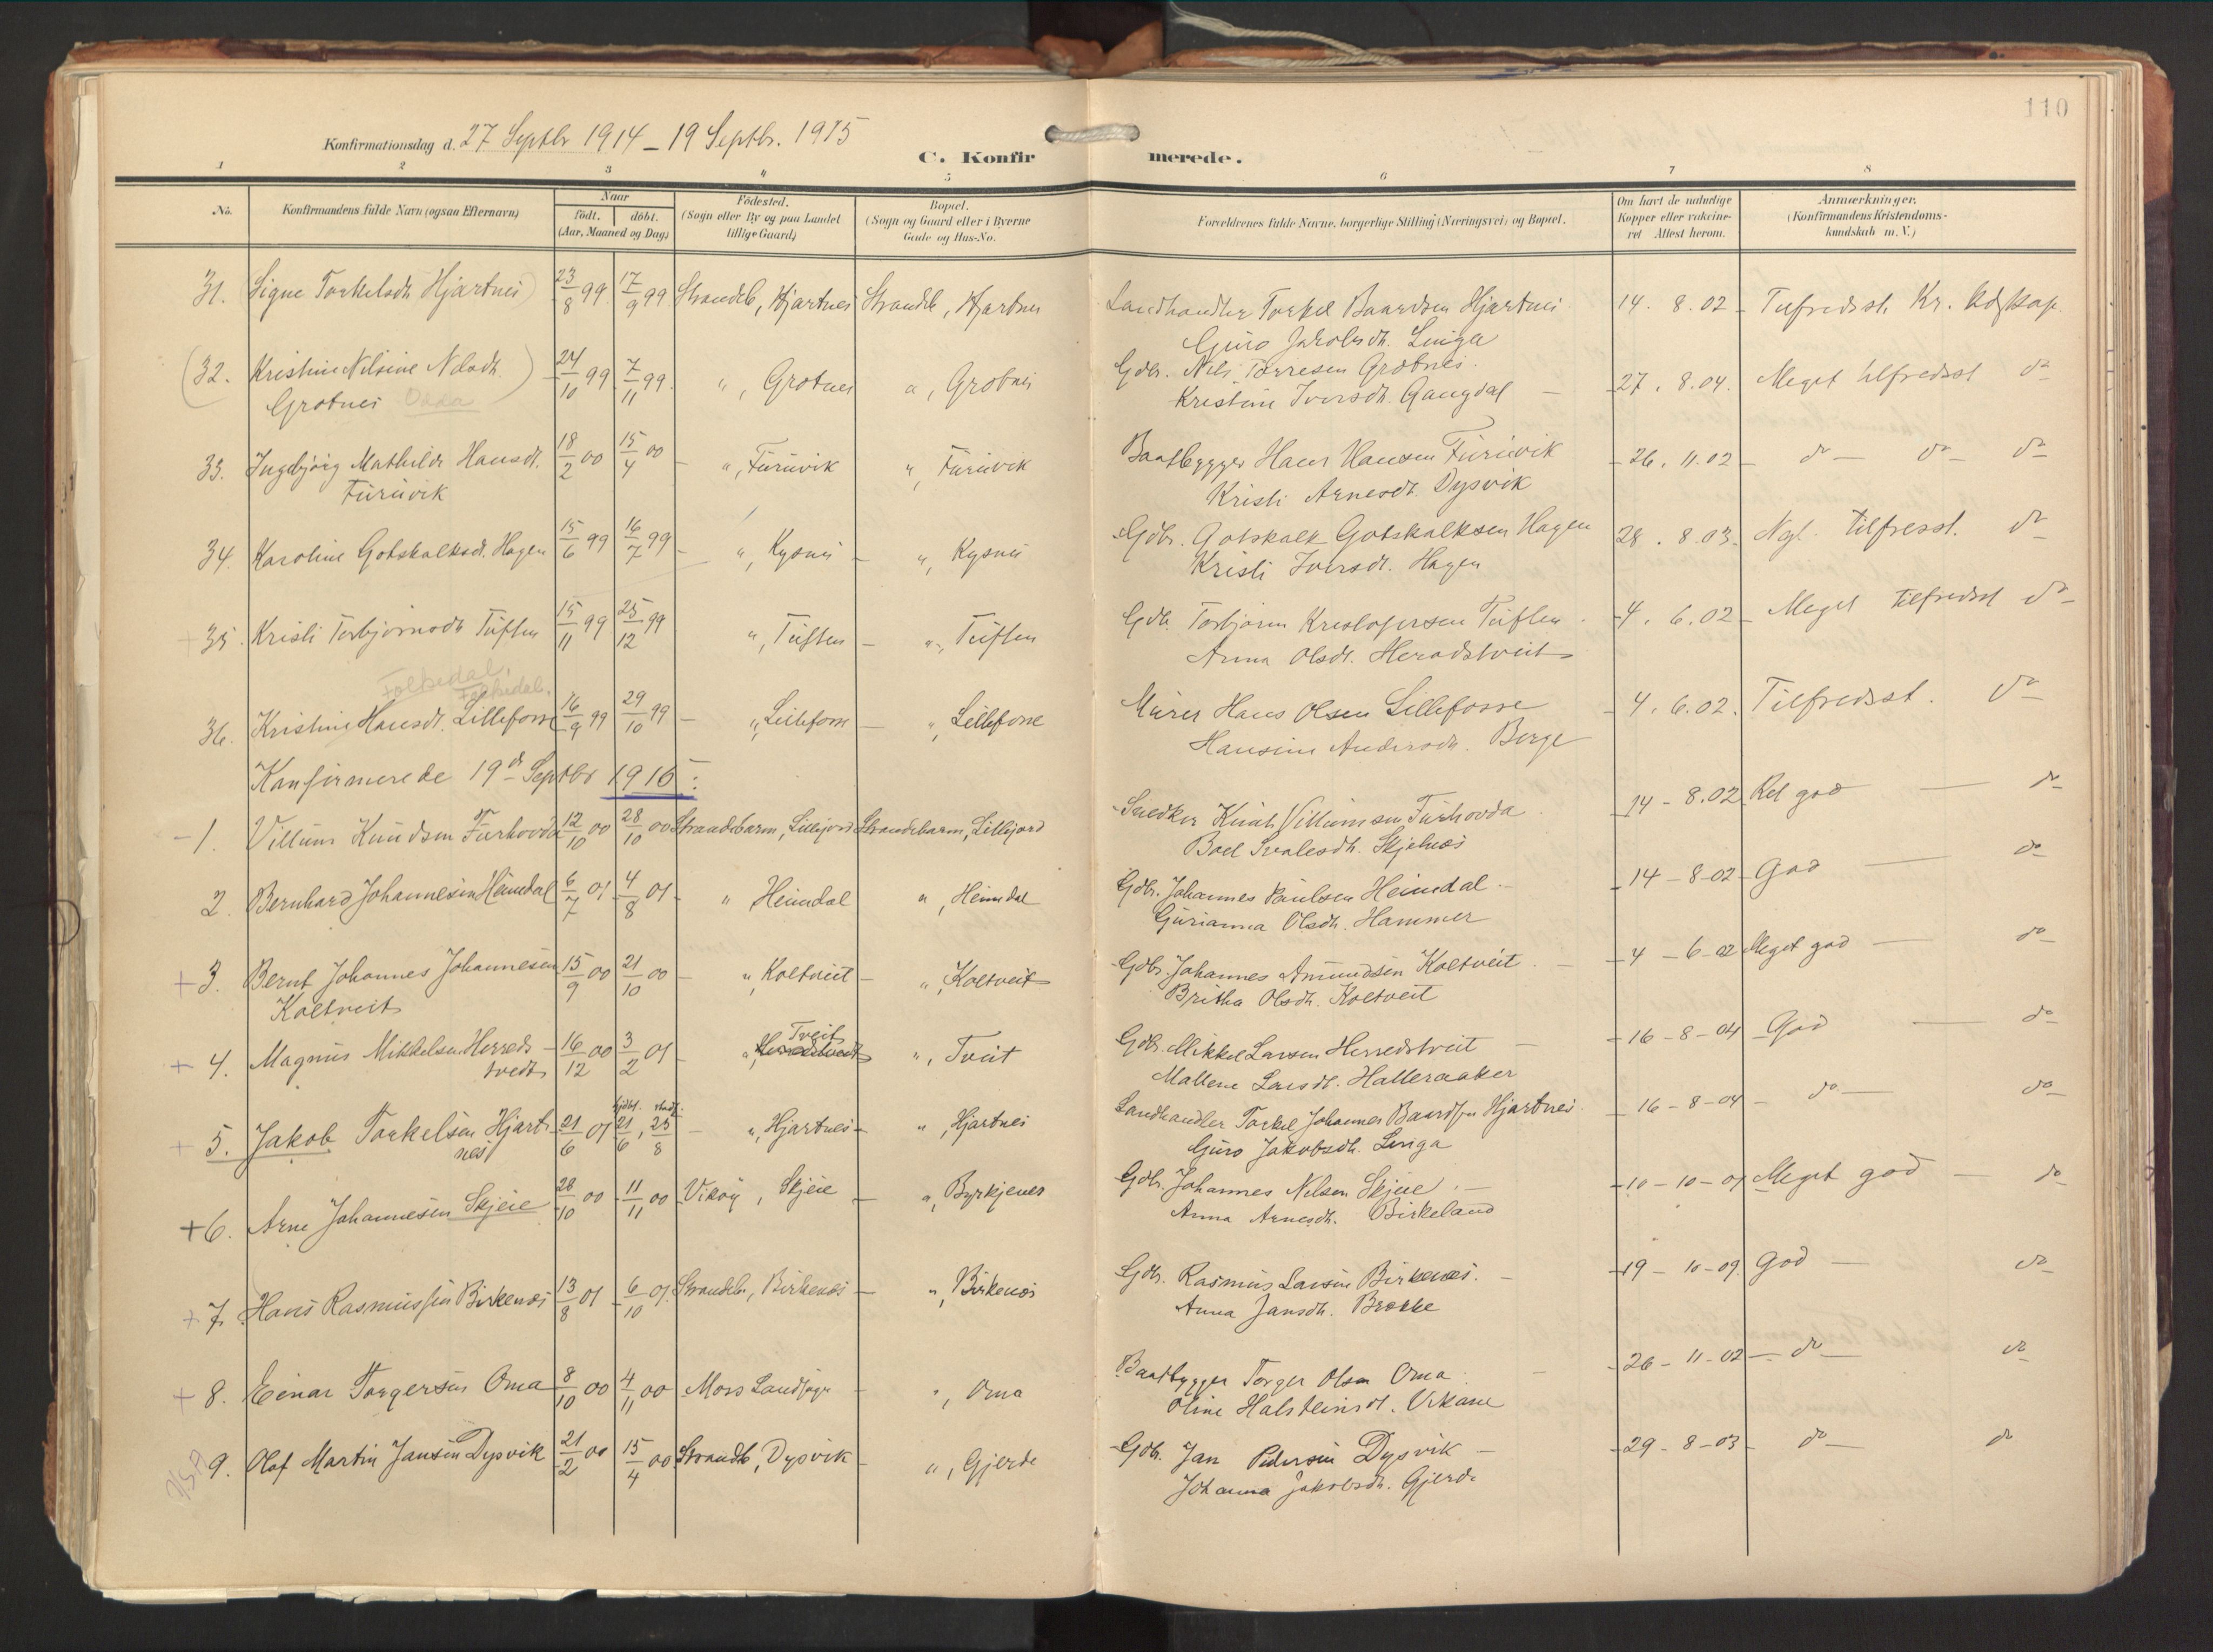 110
Konfirmationsdag d. 27 Septbr 1914 – 19 Septbr. 1915
C. Konfirmerede.
1 2 3 4 5 6 7 8
No. Konfirmandens fulde Navn (ogsaa Efternavn) Naar født. døbt. (Aar, Maaned og Dag) Fødested. (Sogn eller By og paa Landet tillige Gaard) Bopæl. (Sogn og Gaard eller i Byerne Gade og Hus-No. Forældrenes fulde Navne, borgerlige Stilling (Næringsvei) og Bopæl. Om havt de naturlige Kopper eller vakcineret Attest herom. Anmærkninger. (Konfirmandens Kristendomskundskab m. V.)
31. Signe Torkelsdtr Hjartnes 23/8 99 17/9 99 Strandb, Hjartnes Strandb, Hjartnes Landhandler Torkel Baardsen Hjartnes 14. 8.02 – Tilfredsst. Kr. kdskap.
Guro Jakobsdtr. Linga
(32. Kristine Nilsine Nilsdt.) 24/10 99 7/11 99. " , Grotnes " , Grotnes Gdbr. Nils Torresen Grotnes. 27. 8.04. Meget tilfredsst do
Grotnes Odda Kristine Iversdt. Gangdal –
33. Ingebjörg Mathilde Hansdt. 18/2 00 15/4 00 – " , Furuvik " , Furuvik Baatbygger Hans Hansen Furuvik – 26. 11.02 – do – do – do
Furuvik Kristi Arnesdt. Dysvik
34. Karoline Gotskalksd. Hagen 15/6 99 16/7 99 – " , Kysnes – " , Kysnes Gdbr. Gotskalk Gotskalksen Hagen 28. 8.03. Ngl. tilfresst. do
Kristi Iversdt. Hagen
+ 35. Kristi Torbjörnsdt Tuften 15/11 99 25/12 99 " , Tuften – " , Tuften Gdb. Torbjörn Kristofersen Tuften. – 4. 6.02 – Meget tilfredsst do
Anna Olsdt. Heradstveit
Folkedal.
Folkedal.
36. Kristine Hansdt. Lillefosse 16/9 99 29/10 99 – " , Lillefosse – " , Lillefosse Murer Hans Olsen Lillefosse – 4. 6.02. Tilfredsst. do
Hansine Andersdt. Berge
Konfirmerede 19de Septbr 1915:
– 1. Villum Knudsen Furhovda 12/10 00 28/10 00 Strandebarm, Lillejord Strandebarm, Lillejord Snedker Knut Villumsen Furhovda. – 14 – 8.02 Rel god – do
Boel Svalesdt. Skjelnes
2. Bernhard Johannesen Heimdal 6/7 01 4/8 01 – " Heimdal " , Heimdal Gdbr. Johannes Paulsen Heimdal. – – 14 – 8-02 – God – do
Gurianna Olsdt. Hammer
+ 3. Bernt Johannes Johannesen 15/9 00 21/10 00 – " , Koltveit – " , Koltveit Gdbr. Johannes Amundsen Koltveit. – 4 – 6-02 Meget god – do
Koltveit Britha Olsdt. Koltveit
Tveit
+ 4. Magnus Mikkelsen Herreds- 16/12 00 3/2 01 – " , Herredstvedt " , Tveit Gdbr. Mikkel Larsen Herredstveit – – 16 – 8-04 – God – do
tvedt Mallene Larsdt. Halleraaker
hjdbt. stadf.
+ 5. Jakob Torkelsen Hjart- 21/6 01 21/6 , 25/8 – " , Hjartnes – " , Hjartnes Landhandler Torkel Johannes Baardsen Hjartnes. – 16 – 8-04 – do – do
nes Guro Jakobsdt. Linga
+ 6. Arne Johannesen Skjeie 28/10 00 11/11 00 Vikøy , Skjeie – " , Byrkjenes Gdbr. Johannes Nilsen Skjeie. – – 10 – 10 – 01 Meget god – do
Anna Arnesdt. Birkeland
+ 7. Hans Rasmussen Birkenes 13/8 01 6/10 01 Strandeb, Birkenes – " , Birkenes Gdbr. Rasmus Larsen Birkenes. – – 19 – 10-09. God – do
Anna Jansdt. Brekke
+ 8. Einar Torgersen Oma 8/10 00 4/11 00 Moss Landsogn – " , Oma Baadbygger Torger Olsen Oma. – – 26 – 11-02 – do – do
Oline Halsteinsd. Vikane
USA 9. Olaf Martin Jansen Dysvik 21/2 00 15/4 00 Strandb, Dysvik – " , Gjerde Gdbr. Jan Pedersen Dysvik – – 29 – 8-03 – do – do
Johanna Jakobsdt. Gjerde